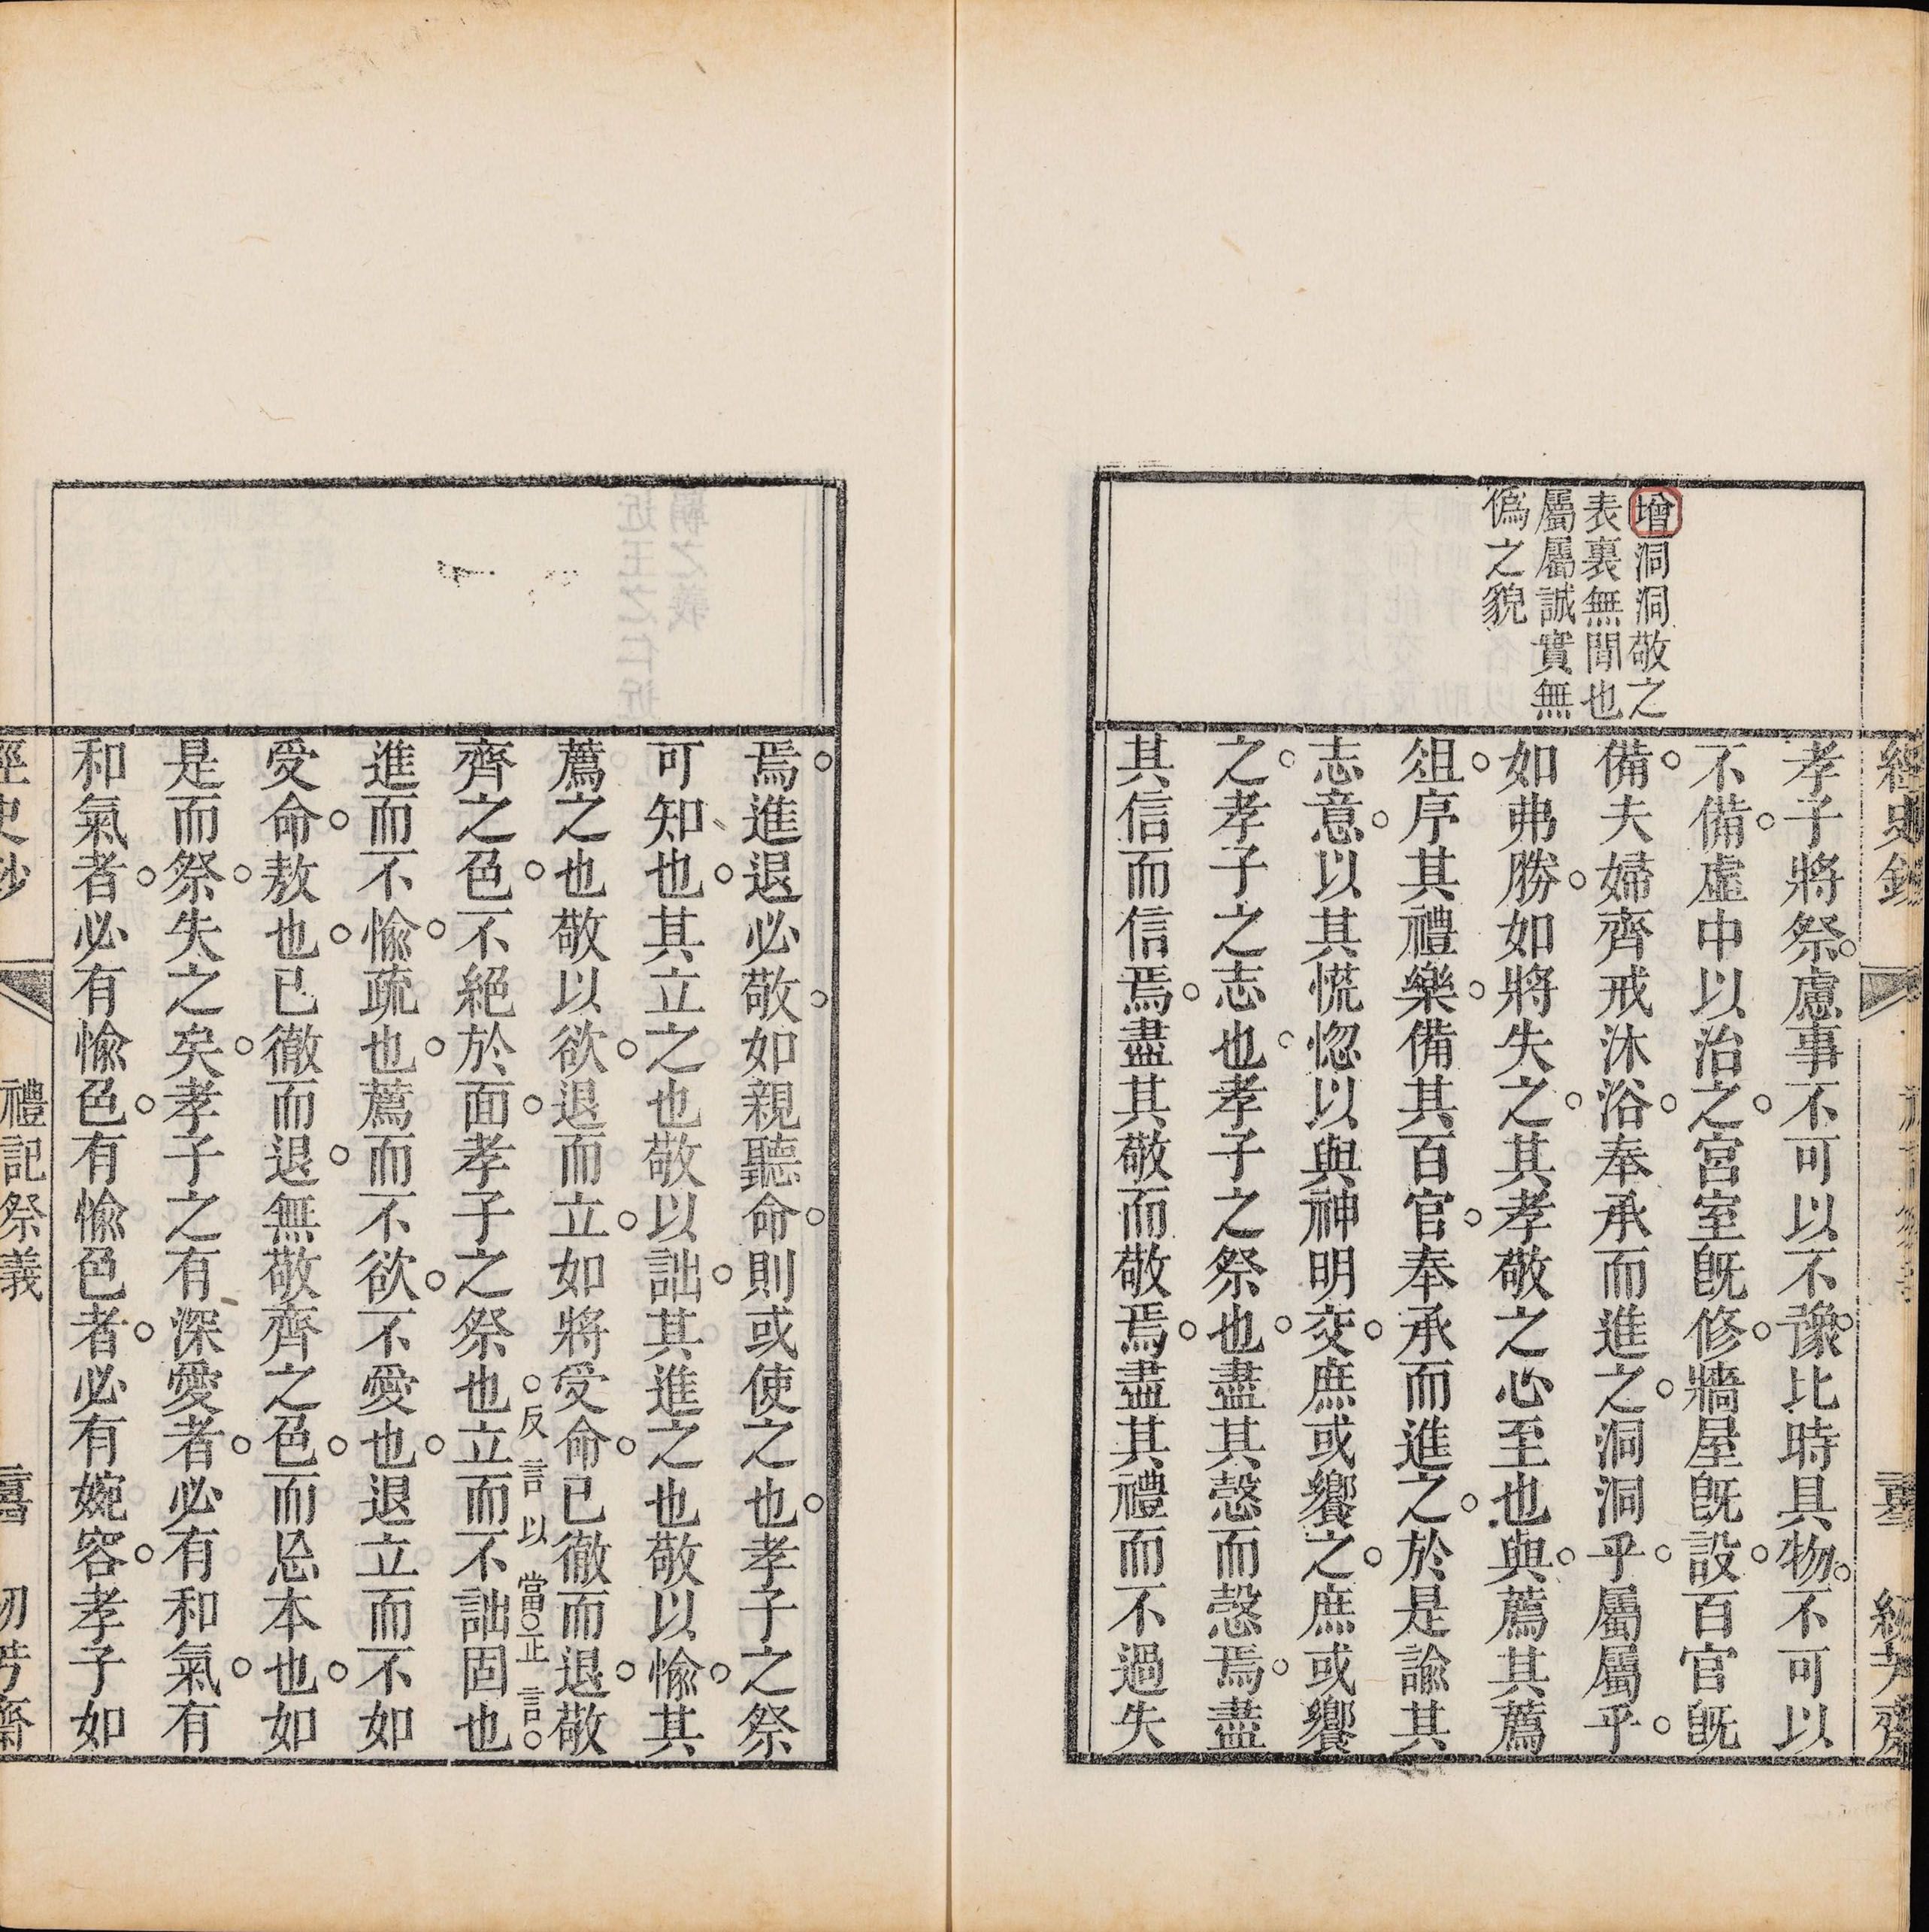 增洞洞敬之
表裏無間也
屬屬誠實無
偽之貌
孝子將祭慮事不可以不豫比時具物不可以
不備虛中以治之宮室旣修牆屋旣設百官旣
備夫婦齊戒沐浴奉承而進之洞洞乎屬屬乎
如弗勝如將失之其孝敬之心至也與薦其薦
俎序其禮樂備其百官奉承而進之於是諭其
志意以其慌惚以與神明交庶或饗之庶或饗
之孝子之志也孝子之祭也盡其愨而愨焉盡
其信而信焉盡其敬而敬焉盡其禮而不過失
焉進退必敬如親聽命則或使之也孝子之祭
可知也其立之也敬以詘其進之也敬以愉其
薦之也敬以欲退而立如將受命已徹而退敬
反言以當正言
齊之色不絕於面孝子之祭也立而不詘固也
進而不愉疏也薦而不欲不愛也退立而不如
受命敖也已徹而退無敬齊之色而忘本也如
是而祭失之矣孝子之有深愛者必有和氣有
和氣者必有愉色有愉色者必有婉容孝子如
經史鈔
禮記祭義